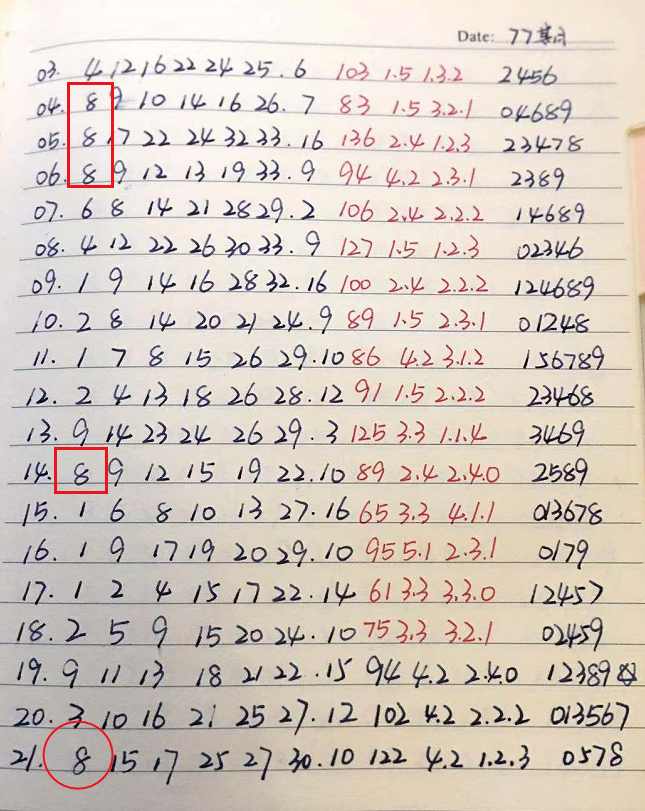 Date: 77期
03. 4 12 16 22 24 25. 6 103 1.5 1.3.2 2456
04. 8 9 10 14 16 26. 7 83 1.5 3.2.1 04689
05. 8 17 22 24 32 33. 16 136 2.4 1.2.3 23478
06. 8 9 12 13 19 33. 9 94 4.2 2.3.1 2389
07. 6 8 14 21 28 29. 2 106 2.4 2.2.2 14689
08. 4 12 22 26 30 33. 9 127 1.5 1.2.3 02346
09. 1 9 14 16 28 32. 16 100 2.4 2.2.2 124689
10. 2 8 14 20 21 24. 9 89 1.5 2.3.1 01248
11. 1 7 8 15 26 29. 10 86 4.2 3.1.2 156789
12. 2 4 13 18 26 28. 12 91 1.5 2.2.2 23468
13. 9 14 23 24 26 29. 3 125 3.3 1.1.4 3469
14. 8 9 12 15 19 22. 10 89 2.4 2.4.0 2589
15. 1 6 8 10 13 27. 16 65 3.3 4.1.1 013678
16. 1 9 17 19 20 29. 10 95 5.1 2.3.1 0179
17. 1 2 4 15 17 22. 14 61 3.3 3.3.0 12457
18. 2 5 9 15 20 24. 10 75 3.3 3.2.1 02459
19. 9 11 13 18 21 22. 15 94 4.2 2.4.0 12389
20. 3 10 16 21 25 27. 12 102 4.2 2.2.2 013567
21. 8 15 17 25 27 30. 10 122 4.2 1.2.3 0578